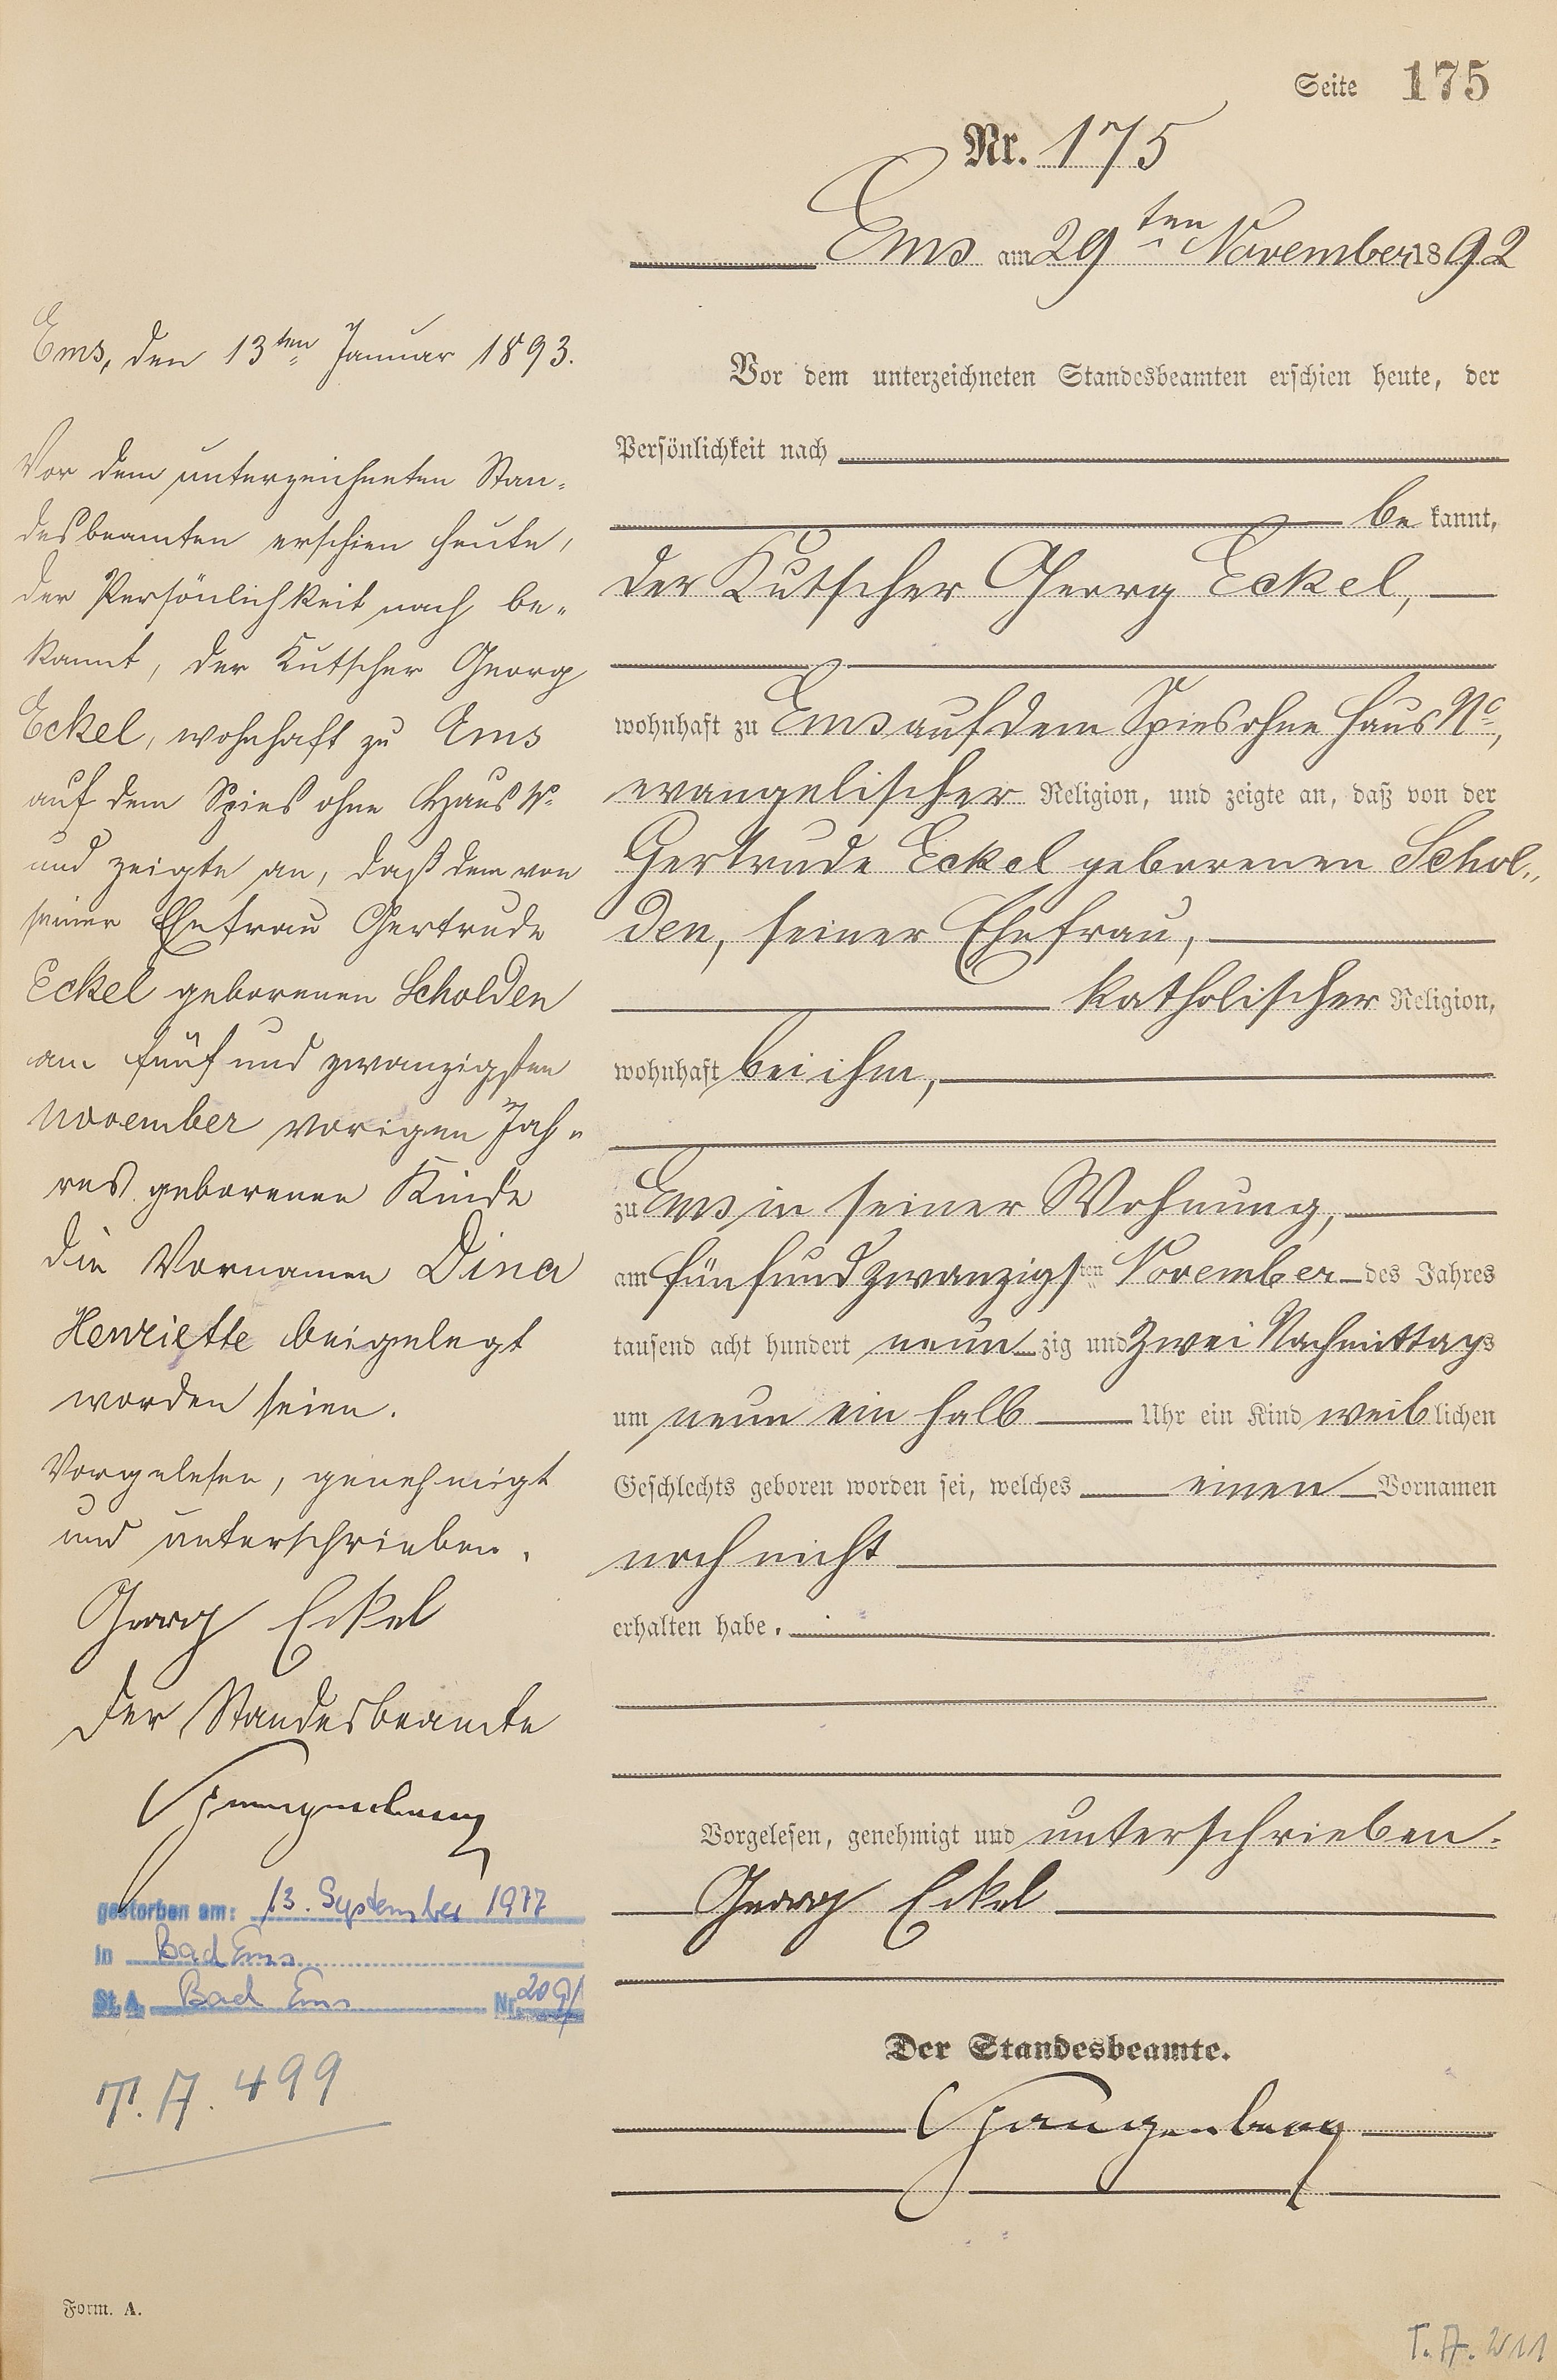 Seite 175
Nr. 175
Ems am 29ten November 1892
Vor dem unterzeichneten Standesbeamten erschien heute, der
Persönlichkeit nach
be kannt,
der Kutscher Georg Eckel,
wohnhaft zu Ems auf dem Spies ohne Haus No,
evangelischer Religion, und zeigte an, daß von der
Gertrude Eckel geborenen Schol„
den, seiner Ehefrau,
katholischer Religion,
wohnhaft bei ihm,
zu Ems in seiner Wohnung,
am fünfundzwanzigsten November des Jahres
tausend acht hundert neunzig und zwei Nachmittags
um neun ein halb Uhr ein Kind weiblichen
Geschlechts geboren worden sei, welches einen Vornamen
noch nicht
erhalten habe.
Vorgelesen, genehmigt und unterschrieben.
Georg Eckel
Der Standesbeamte.
Spangenberg
Ems, den 13ten Januar 1893.
Vor dem unterzeichneten Stan=
desbeamten erschien heute,
der Persönlichkeit nach be=
kannt, der Kutscher Georg
Eckel, wohnhaft zu Ems
auf dem Spies ohne Haus No
und zeigte an, daß dem von
seiner Ehefrau Gertrude
Eckel geborenen Scholden
am fünf und zwanzigsten
November vorigen Jah=
res geborenen Kinde
die Vornamen Dina
Henriette beigelegt
worden seien.
Vorgelesen, genehmigt
und unterschrieben.
Georg Eckel
Der Standesbeamte
Spangenberg
gestorben am: 13. September 1977
in Bad Ems
St. A. Bad Ems Nr. 209/
T. A. 499
Form. A.
T. A. 211